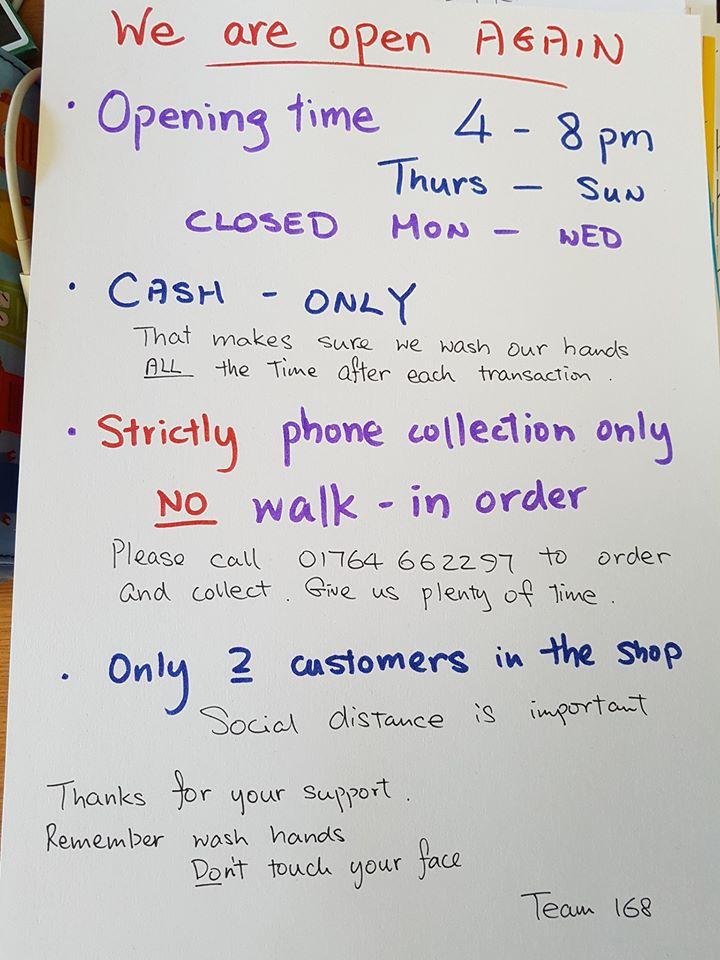 We are open AGAIN
• Opening time 4 - 8 pm
Thurs - SUN
CLOSED MON - WED
• CASH - ONLY
That makes sure we wash our hands
ALL the Time after each transaction.
• Strictly phone collection only
NO walk-in order
Please call 01764 662297 to order
and collect. Give us plenty of Time.
• Only 2 customers in the shop
Social distance is important
Thanks for your support.
Remember wash hands
Don't touch your face
Team 168